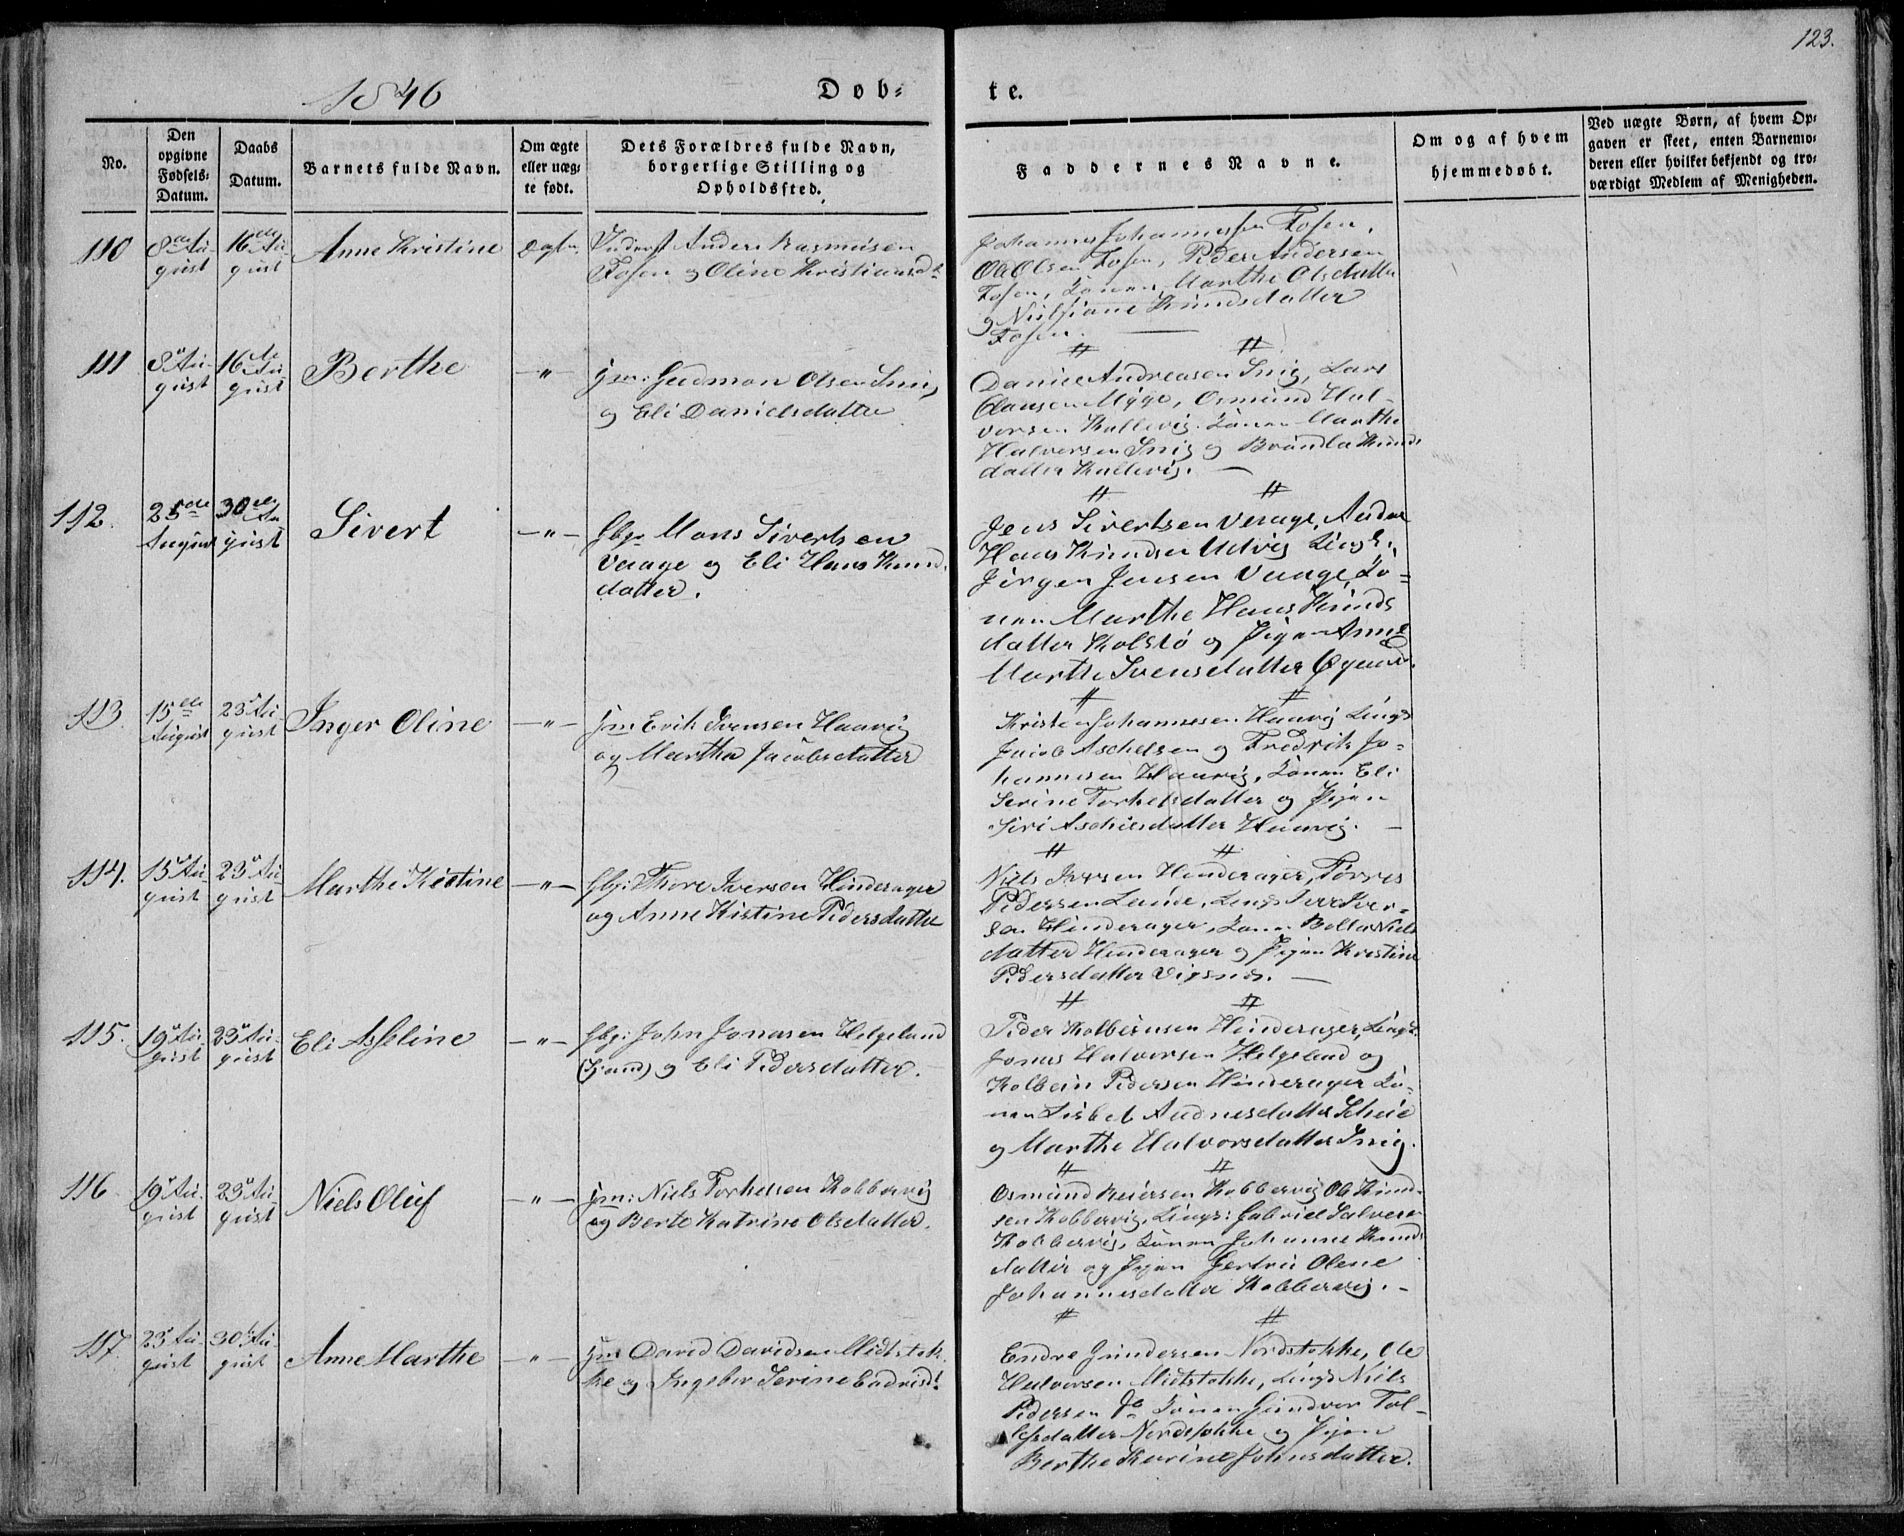 123.
1846
Døb-
te.
No.
Den
opgivne
Fødsels-
Datum.
Daabs
Datum.
Barnets fulde Navn.
Om ægte
eller uæg-
te født.
Dets Forældres fulde Navn,
borgerlige Stilling og
Opholdssted.
Faddernes Navne.
Om og af hvem
hjemmedøbt.
Ved uægte Børn, af hvem Op-
gaven er skeet, enten Barnemo-
deren eller hvilket bekjendt og tro-
værdigt Medlem af Menigheden.
110
8de Au-
gust
16de Au-
gust
Anne Kristine
Inderst Anders Rasmusen
Fosen og Oline Kristiansd
Johannes Johannessen Fosen,
Ole Olsen Fosen, Peder Andersen
Fosen, Konen Marthe Olsdatter
og Nilsiane Knudsdatter
Fosen.
111
8de Au-
gust
16de Au-
gust
Berthe
—"—
jm: Gudmon Olsen Snig
og Eli Danielsdatter
Daniel Andreasen Snig, Lars
Clausen Mygge, Osmund Hal-
vorsen Kallevig. Konen Marthe
Halvorsen Snig og Brønla Knuds
datter Kallevig. —
112.
25de
August
30de Au
gust
Sivert
—"—
Gbgr Mons Sivertsen
Vaage og Eli Hans Knud
datter.
Jens Sivertsen Vaage, Anders
Hans Knudsen Udvig Lingk.
Jørgen Jensen Vaage, Ko-
nen Marthe Hans Knuds
datter Kolstø og Pigen Anne
Marthe Svensdatter
113.
15de
August
23de Au-
gust
Inger Oline
—"—
jm Erik Svensen Haavig
og Martha Jacobsdatter
Kristen Johannesen Haavig Lingk
Jacob Aschelsen og Fredrik Jo-
hannesen Haavig, Konen Eli
Serine Torkelsdatter og Pigen
Siri Aschelsdatter Haavig. —
114.
15de Au-
gust
23de Au-
gust
Marthe Kistine
—"—
Gbgr: Thore Iversen Hinderager
og Anne Kistine Pedersdatter
Niels Iversen Hinderager, Tørres
Pedersen Lunde, Lingk Iver Iver-
sen Hinderager, Konen Bella Niels
datter Hinderager og Pigen Kristine
Pedersdatter Vigsnes. —
115.
19de Au-
gust
23de Au-
gust
Eli Asseline
—"—
Gbgr: John Jonasen Helgeland
og Eli Pedersdatter. —
Peder Kolbeinsen Hinderager, Lingk
Jonas Halvorsen Helgeland og
Kolbein Pedersen Hinderager Ko-
nen Lisbet Audnesdatter Scheie
og Marthe Halvorsdatter Snig.
116.
19de Au-
gust
23de Au-
gust
Niels Oluf
—"—
jm: Niels Torkelsen Kobbervig
og Berte Katrine Olsdatter.
Osmund Reiersen Kobbervig Ole Knud-
sen Kobbervig, Lingk: Gabriel Salvesen
Kobbervig, Konen Johanne Knuds
datter og Pigen Gertru Olene
Johannesdatter Kobbervig. —
117.
23de Au-
gust
30te Au-
gust
Anne Marthe
—"—
jm David Davidsen Midtstok-
ke og Ingebor Serine Endresdt
Endre Gundersen Nordstokke, Ole
Halvorsen Midtstokke, Lingk Niels
Pedersen Konen Gundvor Tol-
lefsdatter Nordstokke og Pigen
Berthe Karine Johnsdatter.